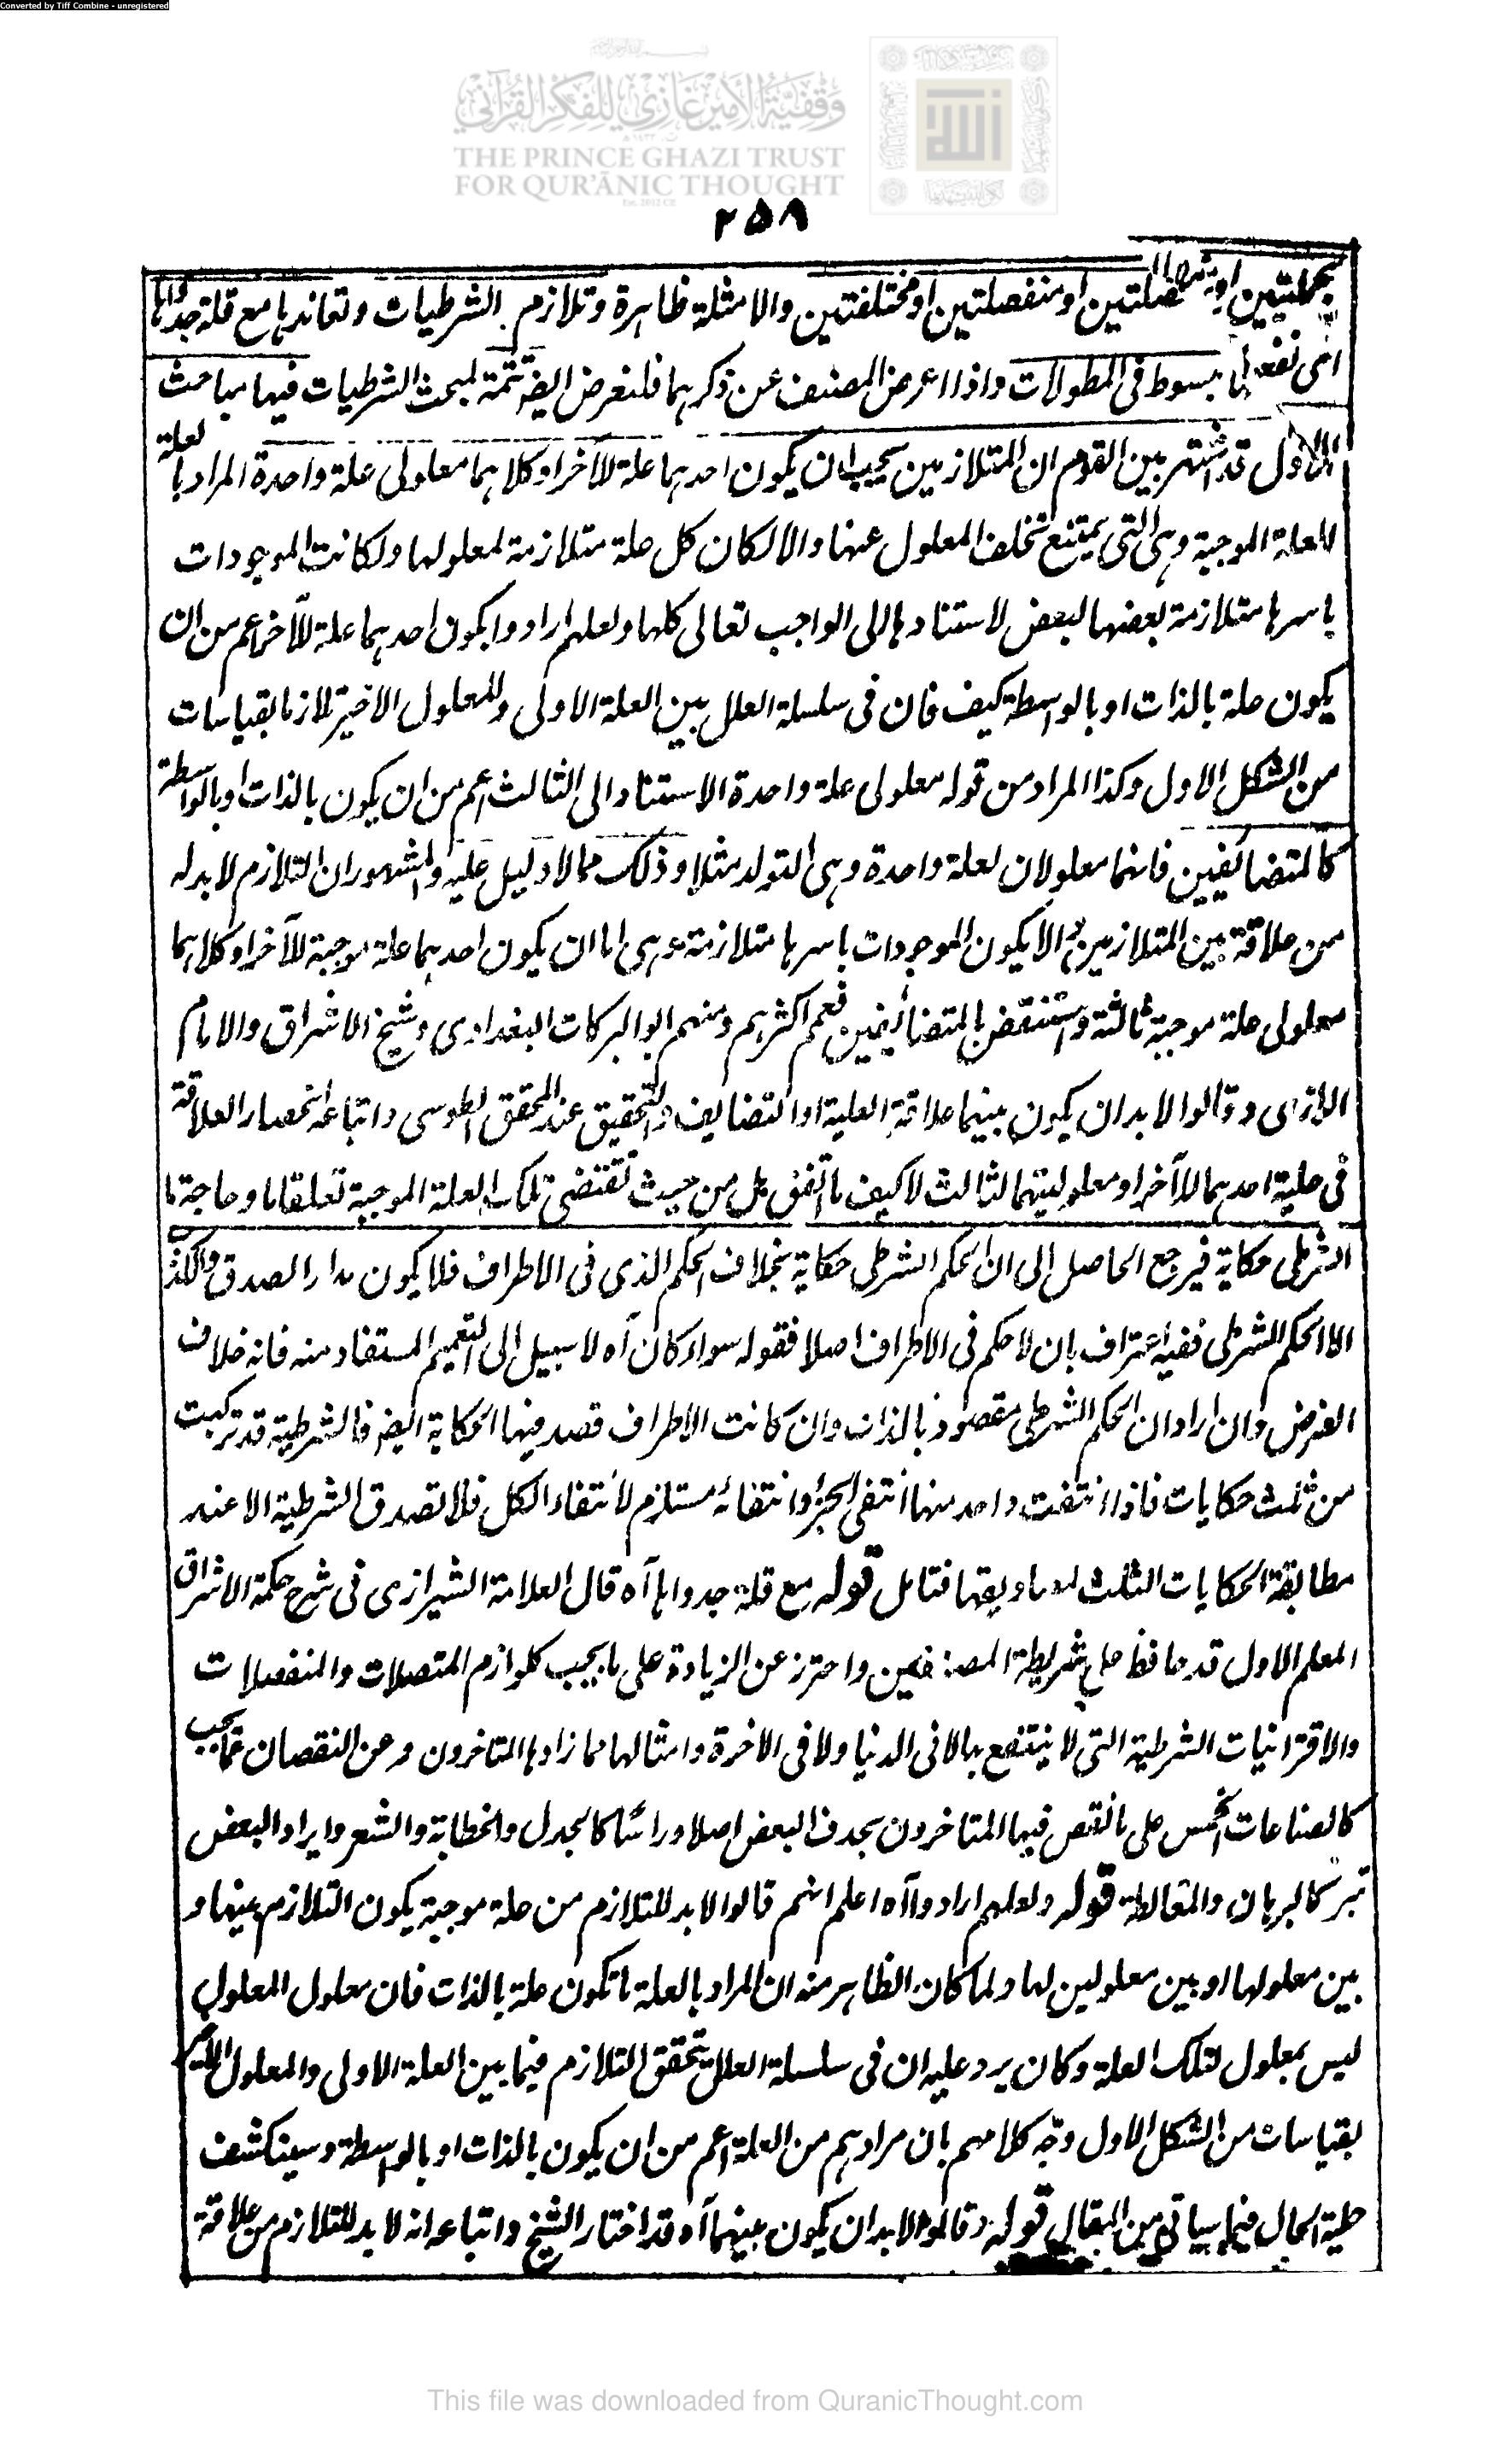 Converted by Tiff Combine - unregistered
وقفية الأمير غازي للفكر القرآني
THE PRINCE GHAZI TRUST
FOR QUR'ĀNIC THOUGHT
Est. 2012 CE
الله
٢٥٨
بحمليتين او متصلتين او منفصلتين او مختلفتين والامثلة ظاهرة وتلازم الشرطيات وتعاندها مع قلة جدواها
نفعها مبسوط فى المطولات واذا اعرض المصنف عن ذكرهما فلنعرض ايضا تتمة لمبحث الشرطيات فيها مباحث
الاول قد اشتهر بين القوم ان المتلازمين يجب ان يكون احدهما علة للآخر او كلاهما معلولى علة واحدة المراد بالعلة
العلة الموجبة وهى التى يمتنع تخلف المعلول عنها والا لكان كل علة متلازمة لمعلولها ولكانت الموجودات
باسرها متلازمة بعضها لبعض لاستنادها الى الواجب تعالى كلها ولعلهم ارادوا بكون احدهما علة للآخر اعم من ان
يكون علة بالذات او بالواسطة كيف فان فى سلسلة العلل بين العلة الاولى والمعلول الاخير تلازما بقياسات
من الشكل الاول وكذا المراد من قوله معلولى علة واحدة الاستناد الى الثالث اعم من ان يكون بالذات او بالواسطة
كالمتضائفين فانهما معلولان لعلة واحدة وهى التولد مثلا وذلك مما لا دليل عليه والمشهور ان التلازم لا بد له
من علاقة بين المتلازمين والا يكون الموجودات باسرها متلازمة وهى اما ان يكون احدهما علة موجبة للآخر او كلاهما
معلولى علة موجبة ثالثة واستنقض بالمتضائفين فعمم اكثرهم ومنهم ابو البركات البغدادى وشيخ الاشراق والامام
الرازى وقالوا لا بد ان يكون بينهما علاقة العلية او التضايف والتحقيق عند المحقق الطوسى واتباعه انحصار العلاقة
فى علية احدهما للآخر او معلوليتهما لثالث لا كيف ما اتفق بل من حيث تقتضى تلك العلة الموجبة تعلقا ما وحاجة ما
الشرطى حكاية فيرجع الحاصل الى ان الحكم الشرطى حكاية بخلاف الحكم الذى فى الاطراف فلا يكون مدار الصدق والكذب
الا الحكم الشرطى ففيه اعتراف بان لا حكم فى الاطراف اصلا فقوله سواء كان آه لا سبيل الى التعميم المستفاد منه فانه خلاف
الغرض وان اراد ان الحكم الشرطى مقصود بالذات وان كانت الاطراف قصد فيها الحكاية ايضا فالشرطية قد تركبت
من ثلث حكايات فاذا انتفت واحد منها انتفى الجزء وانتفائه مستلزم لانتفاء الكل فلا تصدق الشرطية الا عند
مطابقة الحكايات الثلث فتامل قوله مع قلة جدواها آه قال العلامة الشيرازى فى شرح حكمة الاشراق
المعلم الاول قد حافظ على شريطة المصنفين واحترز عن الزيادة على ما يجب كلوازم المتصلات والمنفصلات
والاقترانيات الشرطية التى لا ينتفع بها لا فى الدنيا ولا فى الاخرة وامثالها مما زادها المتاخرون وعن النقصان عما يجب
كالصناعات الخمس على ما نقص فيها المتاخرون بحذف البعض اصلا وراسا كالجدل والخطابة والشعر وايراد البعض
كالبرهان والمغالطة قوله ولعلهم ارادوا آه اعلم انهم قالوا لا بد للتلازم من علة موجبة يكون التلازم بينها و
بين معلولها او بين معلولين لها ولما كان الظاهر منه ان المراد بالعلة ما تكون علة بالذات فان معلول المعلول
ليس بمعلول لتلك العلة وكان يرد عليه ان فى سلسلة العلل يتحقق التلازم فيما بين العلة الاولى والمعلول الاخير
بقياسات من الشكل الاول وجّه كلامهم بان مرادهم من العلة اعم من ان يكون بالذات او بالواسطة وسينكشف
جلية الحال فيما سياتى من المقال قوله وقالوا لا بد ان يكون بينهما آه قد اختار الشيخ واتباعه انه لا بد للتلازم من علاقة
This file was downloaded from QuranicThought.com